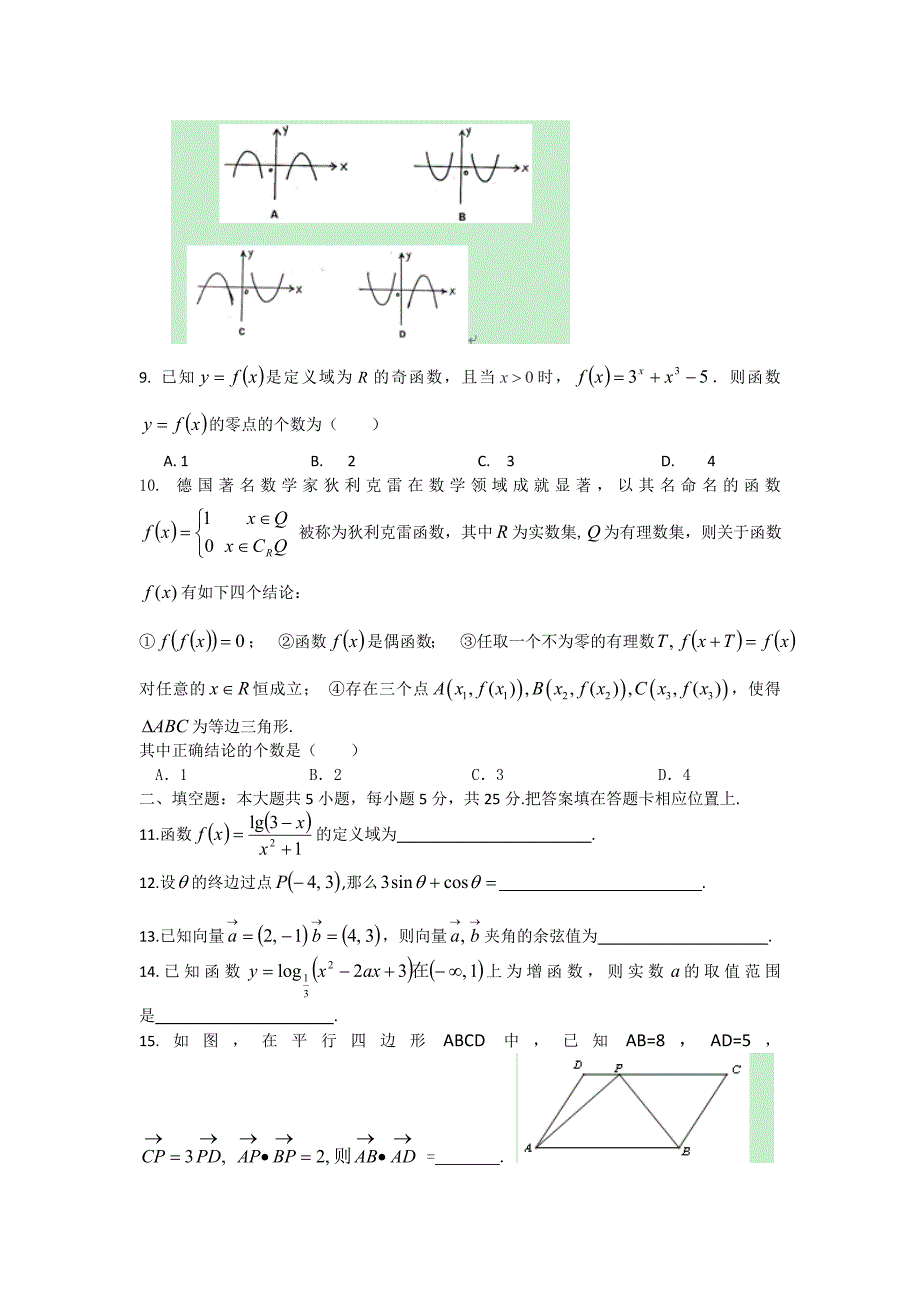 y y
x x
o o
A B
y y
x x
o o
C D
9. 已知 y = f(x) 是定义域为 R 的奇函数，且当 x > 0 时， f(x) = 3^x + x^3 − 5 . 则函数
y = f(x) 的零点的个数为（　　）
A. 1 B. 2 C. 3 D. 4
10. 德国著名数学家狄利克雷在数学领域成就显著，以其名命名的函数
f(x) = { 1 x ∈ Q
0 x ∈ C_R Q 被称为狄利克雷函数，其中 R 为实数集, Q 为有理数集，则关于函数
f(x) 有如下四个结论：
① f(f(x)) = 0 ； ②函数 f(x) 是偶函数； ③任取一个不为零的有理数 T , f(x+T) = f(x)
对任意的 x ∈ R 恒成立； ④存在三个点 A(x_1, f(x_1)), B(x_2, f(x_2)), C(x_3, f(x_3)) ，使得
ΔABC 为等边三角形.
其中正确结论的个数是（　　）
A．1 B．2 C．3 D．4
二、填空题：本大题共 5 小题，每小题 5 分，共 25 分.把答案填在答题卡相应位置上.
11.函数 f(x) = lg(3 − x) / (x^2 + 1) 的定义域为 ________ .
12.设 θ 的终边过点 P(− 4, 3) ,那么 3sin θ + cos θ = ________ .
13.已知向量 →a = (2, −1) →b = (4, 3) ，则向量 →a, →b 夹角的余弦值为 ________ .
14.已知函数 y = log_{1/3}(x^2 − 2ax + 3)在(− ∞, 1) 上为增函数，则实数 a 的取值范围
是 ________ .
15. 如图，在平行四边形 ABCD 中，已知 AB=8，AD=5，
→CP = 3→PD, →AP•→BP = 2, 则 →AB•→AD = ________ .
D P C
A B